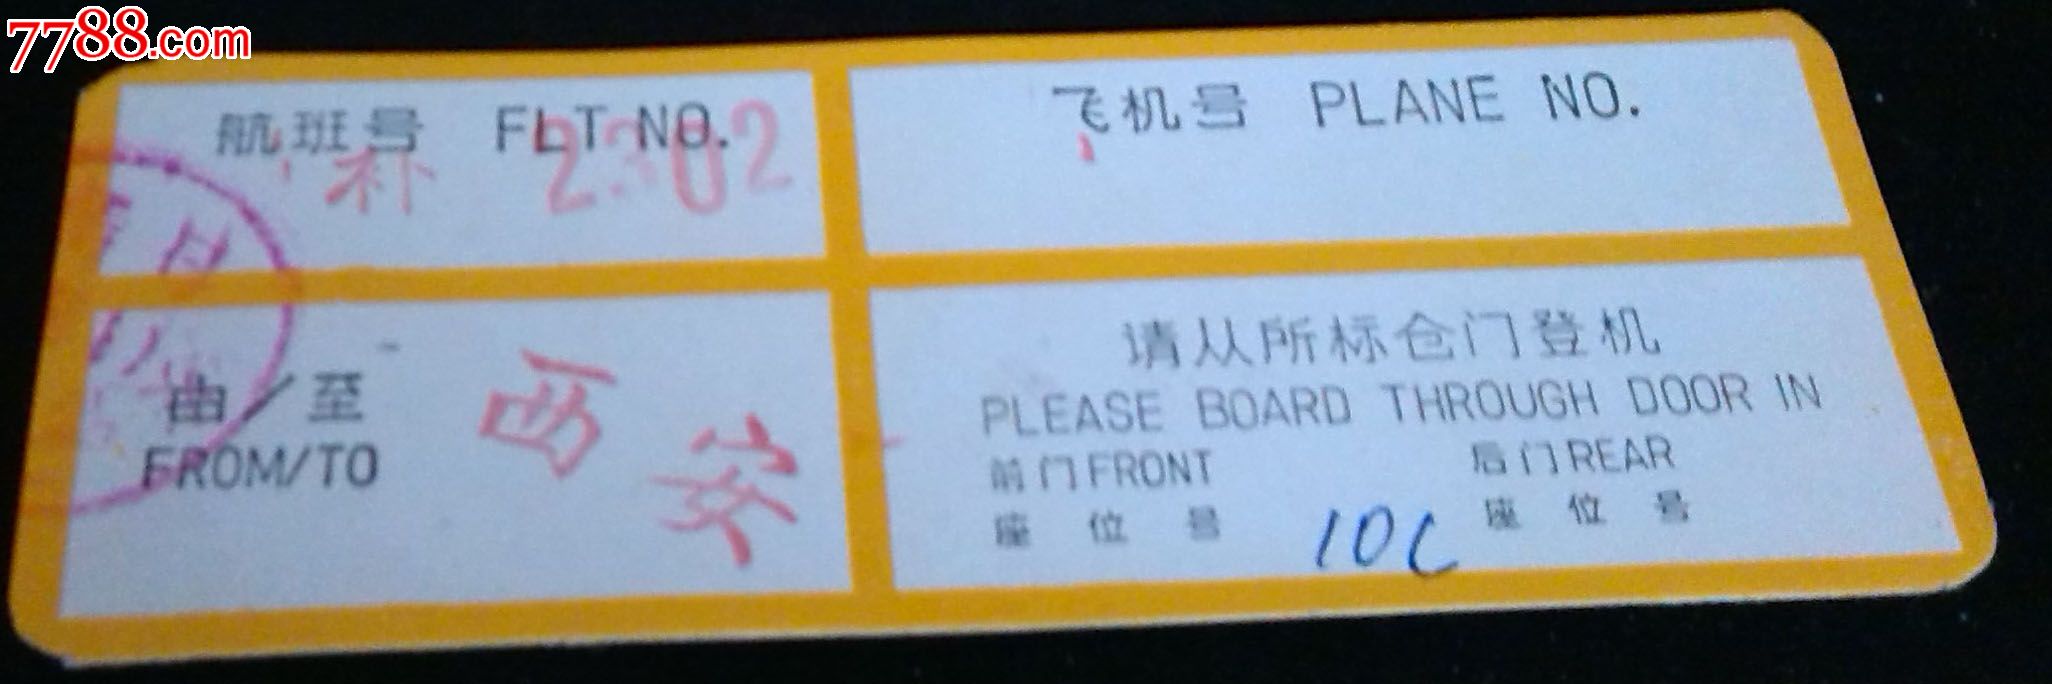 7788.com
航班号 FLT NO.
补 2302
飞机号 PLANE NO.
由/至
FROM/TO
西安
请从所标仓门登机
PLEASE BOARD THROUGH DOOR IN
前门FRONT 后门REAR
座位号 10C 座位号